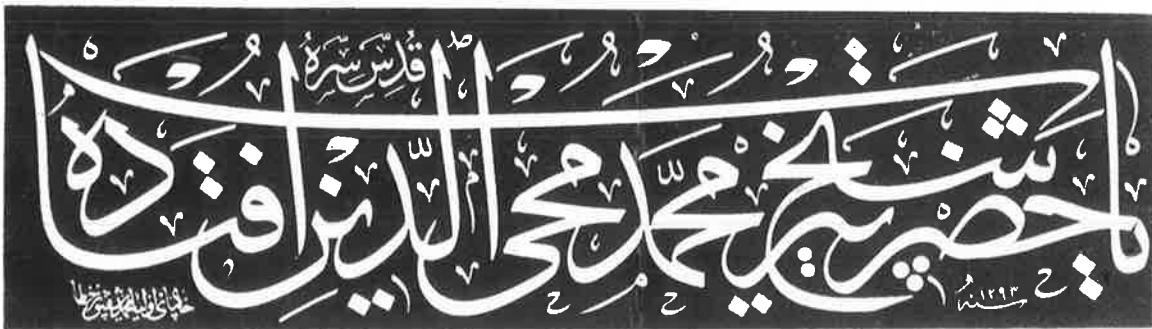 يا حضرت پير شيخ محمد محيى الدين افتاده
قدس سره
سنه ١٢٩٣